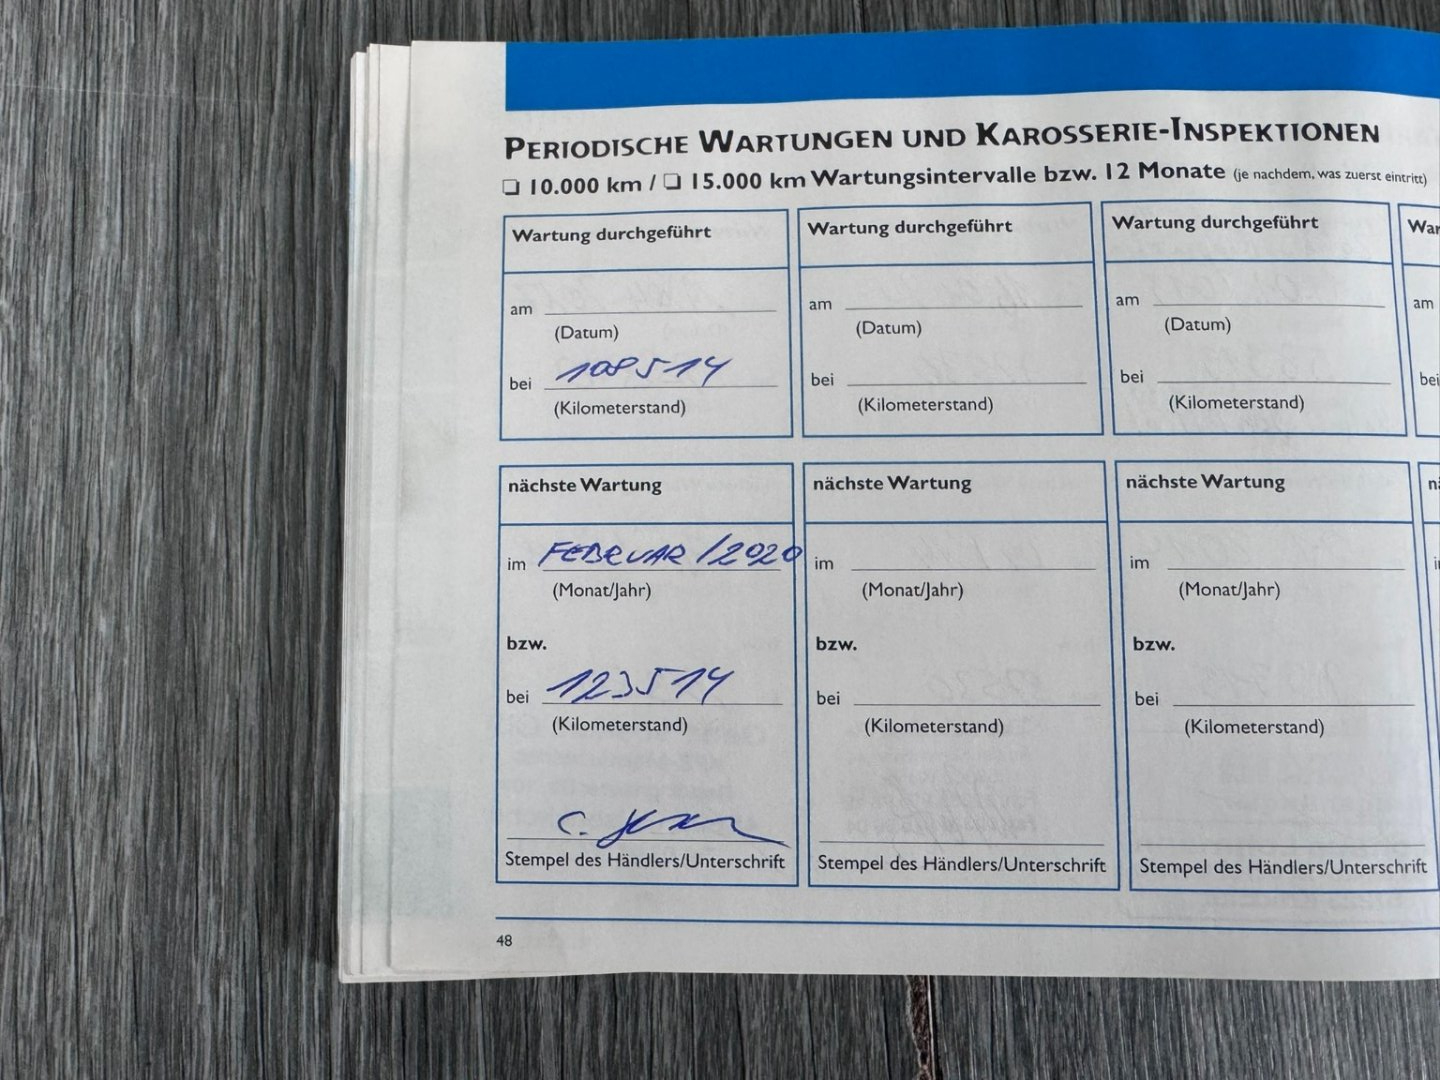 PERIODISCHE WARTUNGEN UND KAROSSERIE-INSPEKTIONEN
❏ 10.000 km / ❏ 15.000 km Wartungsintervalle bzw. 12 Monate (je nachdem, was zuerst eintritt)
Wartung durchgeführt
am
(Datum)
bei 108514
(Kilometerstand)
nächste Wartung
im FEBRUAR/2020
(Monat/Jahr)
bzw.
bei 123514
(Kilometerstand)
C.
Stempel des Händlers/Unterschrift
Wartung durchgeführt
am
(Datum)
bei
(Kilometerstand)
nächste Wartung
im
(Monat/Jahr)
bzw.
bei
(Kilometerstand)
Stempel des Händlers/Unterschrift
Wartung durchgeführt
am
(Datum)
bei
(Kilometerstand)
nächste Wartung
im
(Monat/Jahr)
bzw.
bei
(Kilometerstand)
Stempel des Händlers/Unterschrift
War
am
bei
48